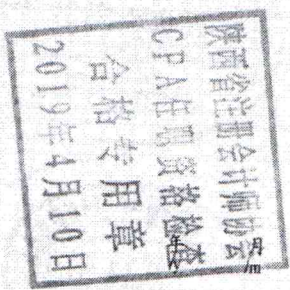 陕西省注册会计师协会
CPA任职资格检查
合格专用章
2019年4月10日
年
月
/y
/m